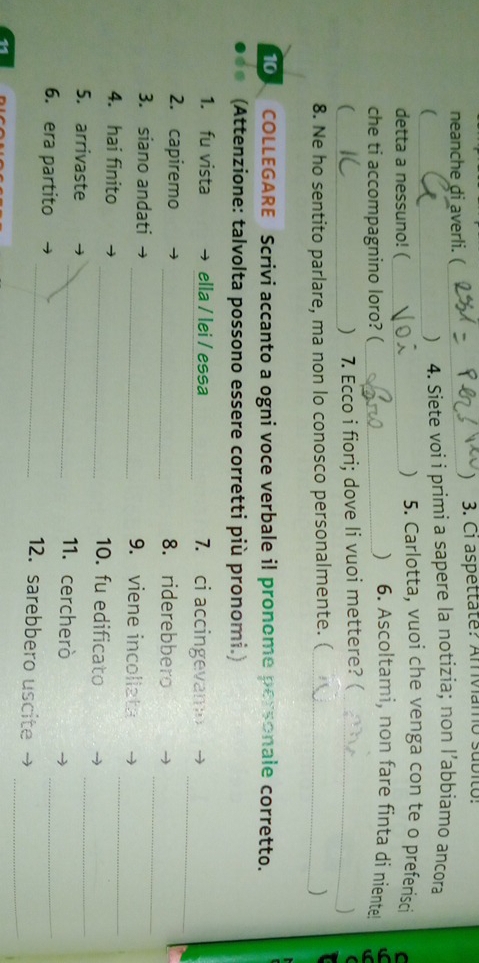 neanche di averli. ( ) 3. Ci aspettate? Arriviamo subito!
( ) 4. Siete voi i primi a sapere la notizia; non l'abbiamo ancora
detta a nessuno! ( voi ) 5. Carlotta, vuoi che venga con te o preferisci
che ti accompagnino loro? ( loro ) 6. Ascoltami, non fare finta di niente!
( ) 7. Ecco i fiori; dove li vuoi mettere? ( )
8. Ne ho sentito parlare, ma non lo conosco personalmente. ( )
10 COLLEGARE Scrivi accanto a ogni voce verbale il pronome personale corretto.
(Attenzione: talvolta possono essere corretti più pronomi.)
1. fu vista → ella / lei / essa
2. capiremo →
3. siano andati →
4. hai finito →
5. arrivaste →
6. era partito →
7. ci accingevamo →
8. riderebbero →
9. viene incollata →
10. fu edificato →
11. cercherò →
12. sarebbero uscite →
11